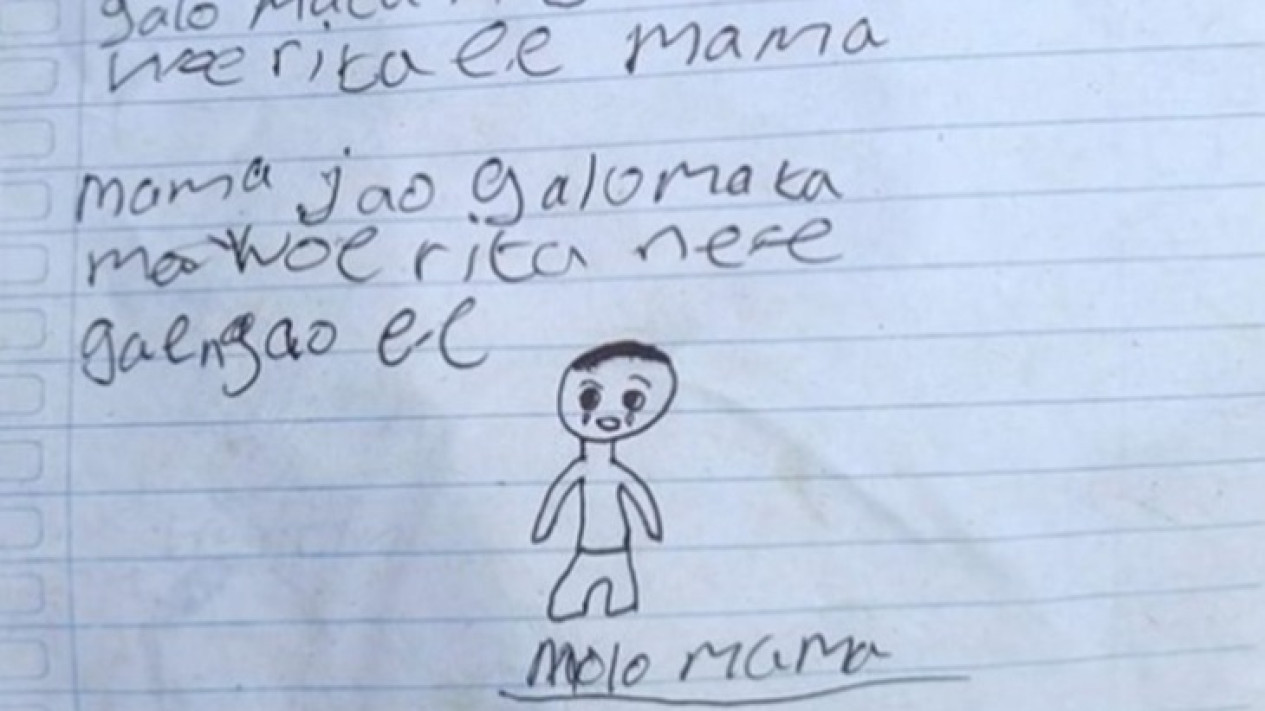 galo mata
woe rita ee mama
mama jao galo mata
mae woe rita ne'e
gae ngao ee
molo mama